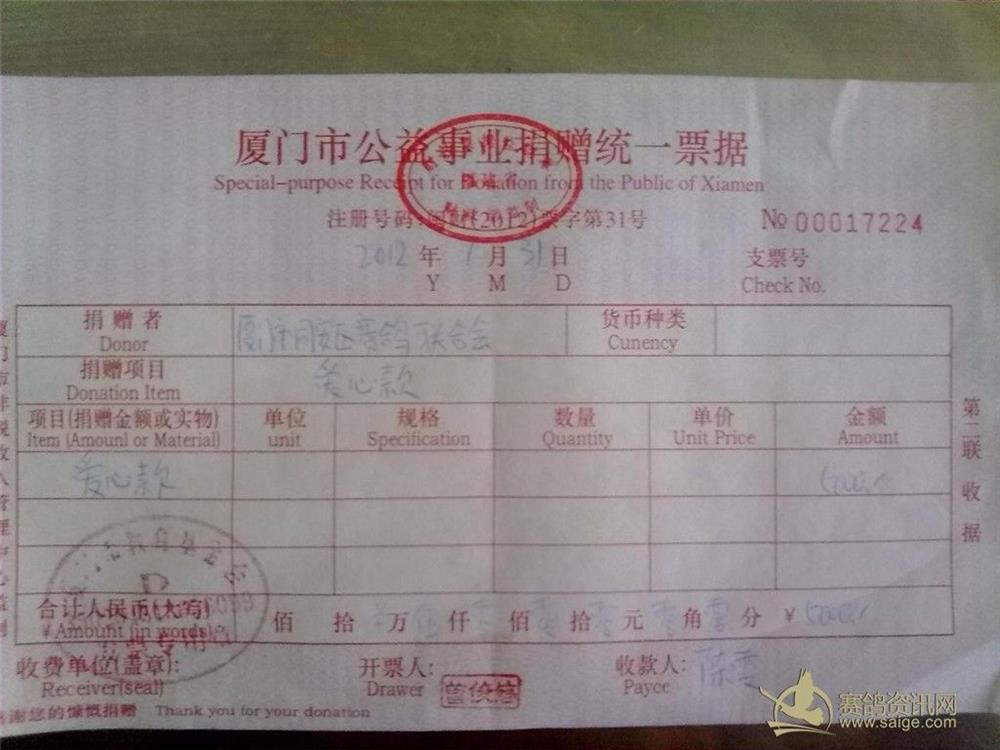 厦门市公益事业捐赠统一票据
Special-purpose Receipt for Donation from the Public of Xiamen
注册号码: (2012)票字第31号 № 00017224
2012 年 1 月 31 日 支票号
Y M D Check No.
捐赠者 厦门同安区赛鸽联合会 货币种类
Donor Cunency
捐赠项目 爱心款
Donation Item
项目(捐赠金额或实物) 单位 规格 数量 单价 金额
Item (Amounl or Material) unit Specification Quantity Unit Price Amount
爱心款 5000
合计人民币(大写) 佰 拾 万 伍 仟 零 佰 零 拾 零 元 零 角 零 分 ¥ 5000
¥Amount (in words)
收费单位(盖章): 开票人: 收款人: 陈雪
Receiver(seal) Drawer Payce
感谢您的慷慨捐赠 Thank you for your donation
第二联 收据
福建省
赛鸽资讯网
www.saige.com